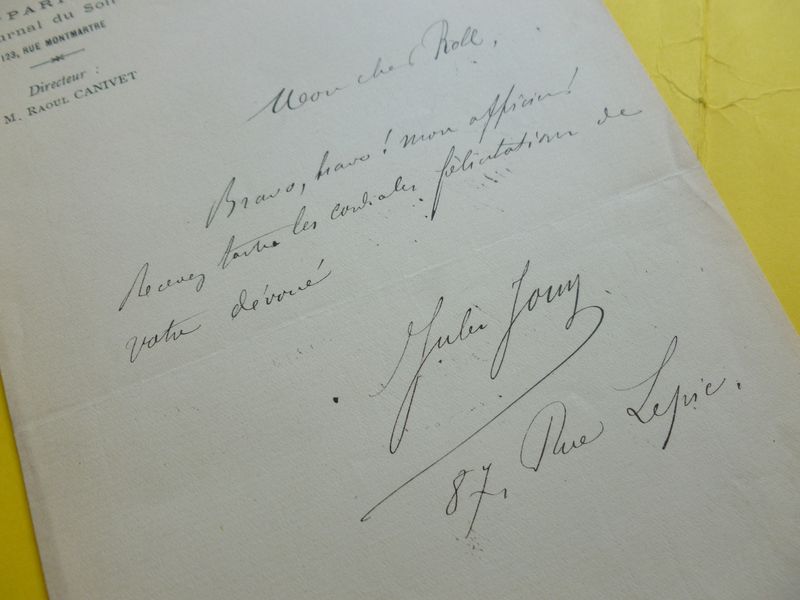 PARI
urnal du Soir
123, RUE MONTMARTRE
Directeur :
M. RAOUL CANIVET
Mon cher Roll,
Bravo, bravo ! mon officier !
Recevez toutes les cordiales félicitations de
votre dévoué
Jules Jouy
87, Rue Lepic.